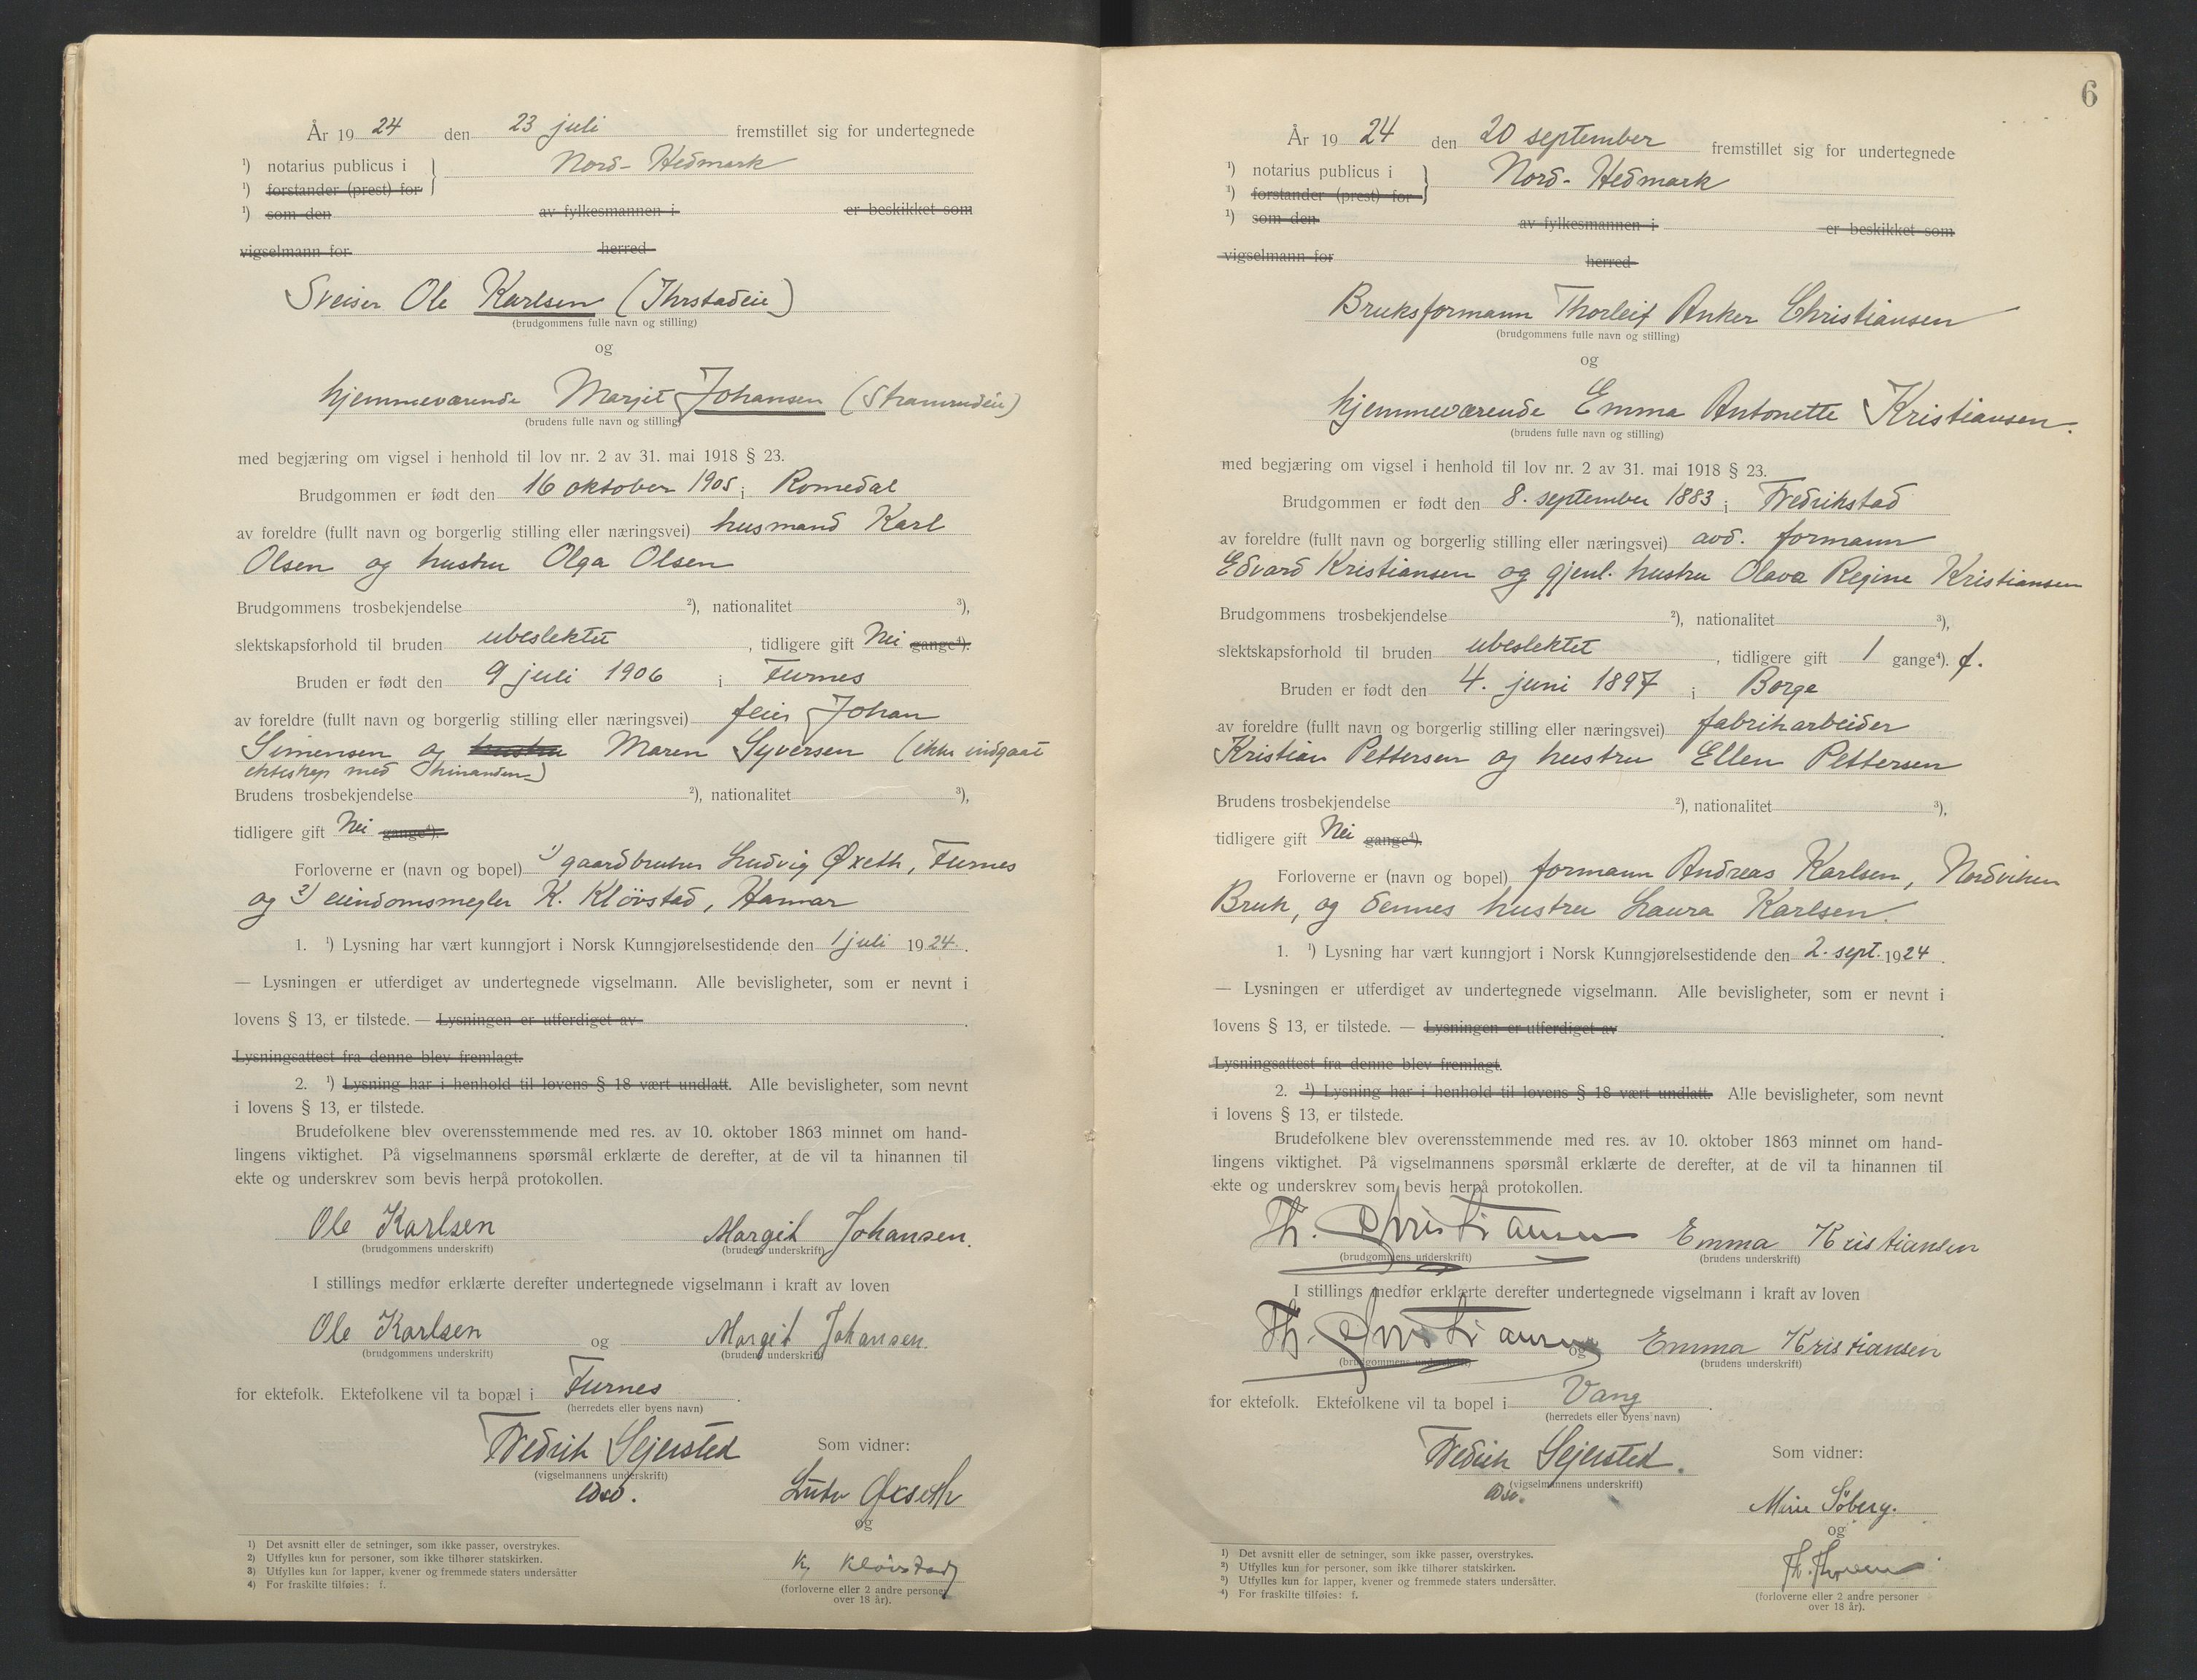 År 19 24 den 23 juli fremstillet sig for undertegnede
¹) notarius publicus i } Nord-Hedmark
¹) forstander (prest) for
¹) som den av fylkesmannen i er beskikket som
vigselmann for herred
Sveiser Ole Karlsen (Ihrstadeie)
(brudgommens fulle navn og stilling)
og
hjemmeværende Margit Johansen (Stramrudeie)
(brudens fulle navn og stilling)
med begjæring om vigsel i henhold til lov nr. 2 av 31. mai 1918 § 23.
Brudgommen er født den 16 oktober 1905 i Romedal
av foreldre (fullt navn og borgerlig stilling eller næringsvei) husmand Karl
Olsen og hustru Olga Olsen
Brudgommens trosbekjendelse ²), nationalitet ³),
slektskapsforhold til bruden ubeslektet, tidligere gift Nei gange⁴).
Bruden er født den 9 juli 1906 i Furnes
av foreldre (fullt navn og borgerlig stilling eller næringsvei) feier Johan
Simensen og hustru Maren Syversen (ikke indgaat
ekteskap med hinanden)
Brudens trosbekjendelse ²), nationalitet ³),
tidligere gift Nei gange⁴).
Forloverne er (navn og bopel) 1) gaardbruker Ludvig Øxeth, Furnes
og 2) eiendomsmegler K. Klövstad, Hamar
1. ¹) Lysning har vært kunngjort i Norsk Kunngjørelsestidende den 1 juli 1924.
— Lysningen er utferdiget av undertegnede vigselmann. Alle bevisligheter, som er nevnt i
lovens § 13, er tilstede. — Lysningen er utferdiget av .
Lysningsattest fra denne blev fremlagt.
2. ¹) Lysning har i henhold til lovens § 18 vært undlatt. Alle bevisligheter, som nevnt
i lovens § 13, er tilstede.
Brudefolkene blev overensstemmende med res. av 10. oktober 1863 minnet om hand-
lingens viktighet. På vigselmannens spørsmål erklærte de derefter, at de vil ta hinannen til
ekte og underskrev som bevis herpå protokollen.
Ole Karlsen Margit Johansen.
(brudgommens underskrift) (brudens underskrift)
I stillings medfør erklærte derefter undertegnede vigselmann i kraft av loven
Ole Karlsen og Margit Johansen.
(brudgommens underskrift) (brudens underskrift)
for ektefolk. Ektefolkene vil ta bopæl i Furnes .
(herredets eller byens navn)
Fredrik Sejersted Som vidner:
(vigselmannens underskrift)
Ludv Øxseth
og
K. Klövstad
(forloverne eller 2 andre personer
over 18 år).
1) Det avsnitt eller de setninger, som ikke passer, overstrykes.
2) Utfylles kun for personer, som ikke tilhører statskirken.
3) Utfylles kun for lapper, kvener og fremmede staters undersåtter
4) For fraskilte tilføies: f.
6
År 19 24 den 20 september fremstillet sig for undertegnede
¹) notarius publicus i } Nord-Hedmark
¹) forstander (prest) for
¹) som den av fylkesmannen i er beskikket som
vigselmann for herred
Bruksformann Thorleif Anker Christiansen
(brudgommens fulle navn og stilling)
og
hjemmeværende Emma Antonette Kristiansen.
(brudens fulle navn og stilling)
med begjæring om vigsel i henhold til lov nr. 2 av 31. mai 1918 § 23.
Brudgommen er født den 8. september 1883 i Fredrikstad
av foreldre (fullt navn og borgerlig stilling eller næringsvei) avd. formann
Edvard Kristiansen og gjenl. hustru Olava Regine Kristiansen
Brudgommens trosbekjendelse ²), nationalitet ³),
slektskapsforhold til bruden ubeslektet, tidligere gift 1 gange⁴). f.
Bruden er født den 4. juni 1897 i Borge
av foreldre (fullt navn og borgerlig stilling eller næringsvei) fabrikarbeider
Kristian Pettersen og hustru Ellen Pettersen
Brudens trosbekjendelse ²), nationalitet ³),
tidligere gift Nei gange⁴).
Forloverne er (navn og bopel) formann Andreas Karlsen, Nordviken
Bruk, og dennes hustru Laura Karlsen.
1. ¹) Lysning har vært kunngjort i Norsk Kunngjørelsestidende den 2. sept. 1924 .
— Lysningen er utferdiget av undertegnede vigselmann. Alle bevisligheter, som er nevnt i
lovens § 13, er tilstede. — Lysningen er utferdiget av .
Lysningsattest fra denne blev fremlagt.
2. ¹) Lysning har i henhold til lovens § 18 vært undlatt. Alle bevisligheter, som nevnt
i lovens § 13, er tilstede.
Brudefolkene blev overensstemmende med res. av 10. oktober 1863 minnet om hand-
lingens viktighet. På vigselmannens spørsmål erklærte de derefter, at de vil ta hinannen til
ekte og underskrev som bevis herpå protokollen.
Th. Christiansen Emma Kristiansen
(brudgommens underskrift) (brudens underskrift)
I stillings medfør erklærte derefter undertegnede vigselmann i kraft av loven
Th. Christiansen og Emma Kristiansen
(brudgommens underskrift) (brudens underskrift)
for ektefolk. Ektefolkene vil ta bopel i Vang .
(herredets eller byens navn)
Fredrik Sejersted. Som vidner:
(vigselmannens underskrift)
Söberg.
og
(forloverne eller 2 andre personer
over 18 år).
1) Det avsnitt eller de setninger, som ikke passer, overstrykes.
2) Utfylles kun for personer, som ikke tilhører statskirken.
3) Utfylles kun for lapper, kvener og fremmede staters undersåtter.
4) For fraskilte tilføies: f.